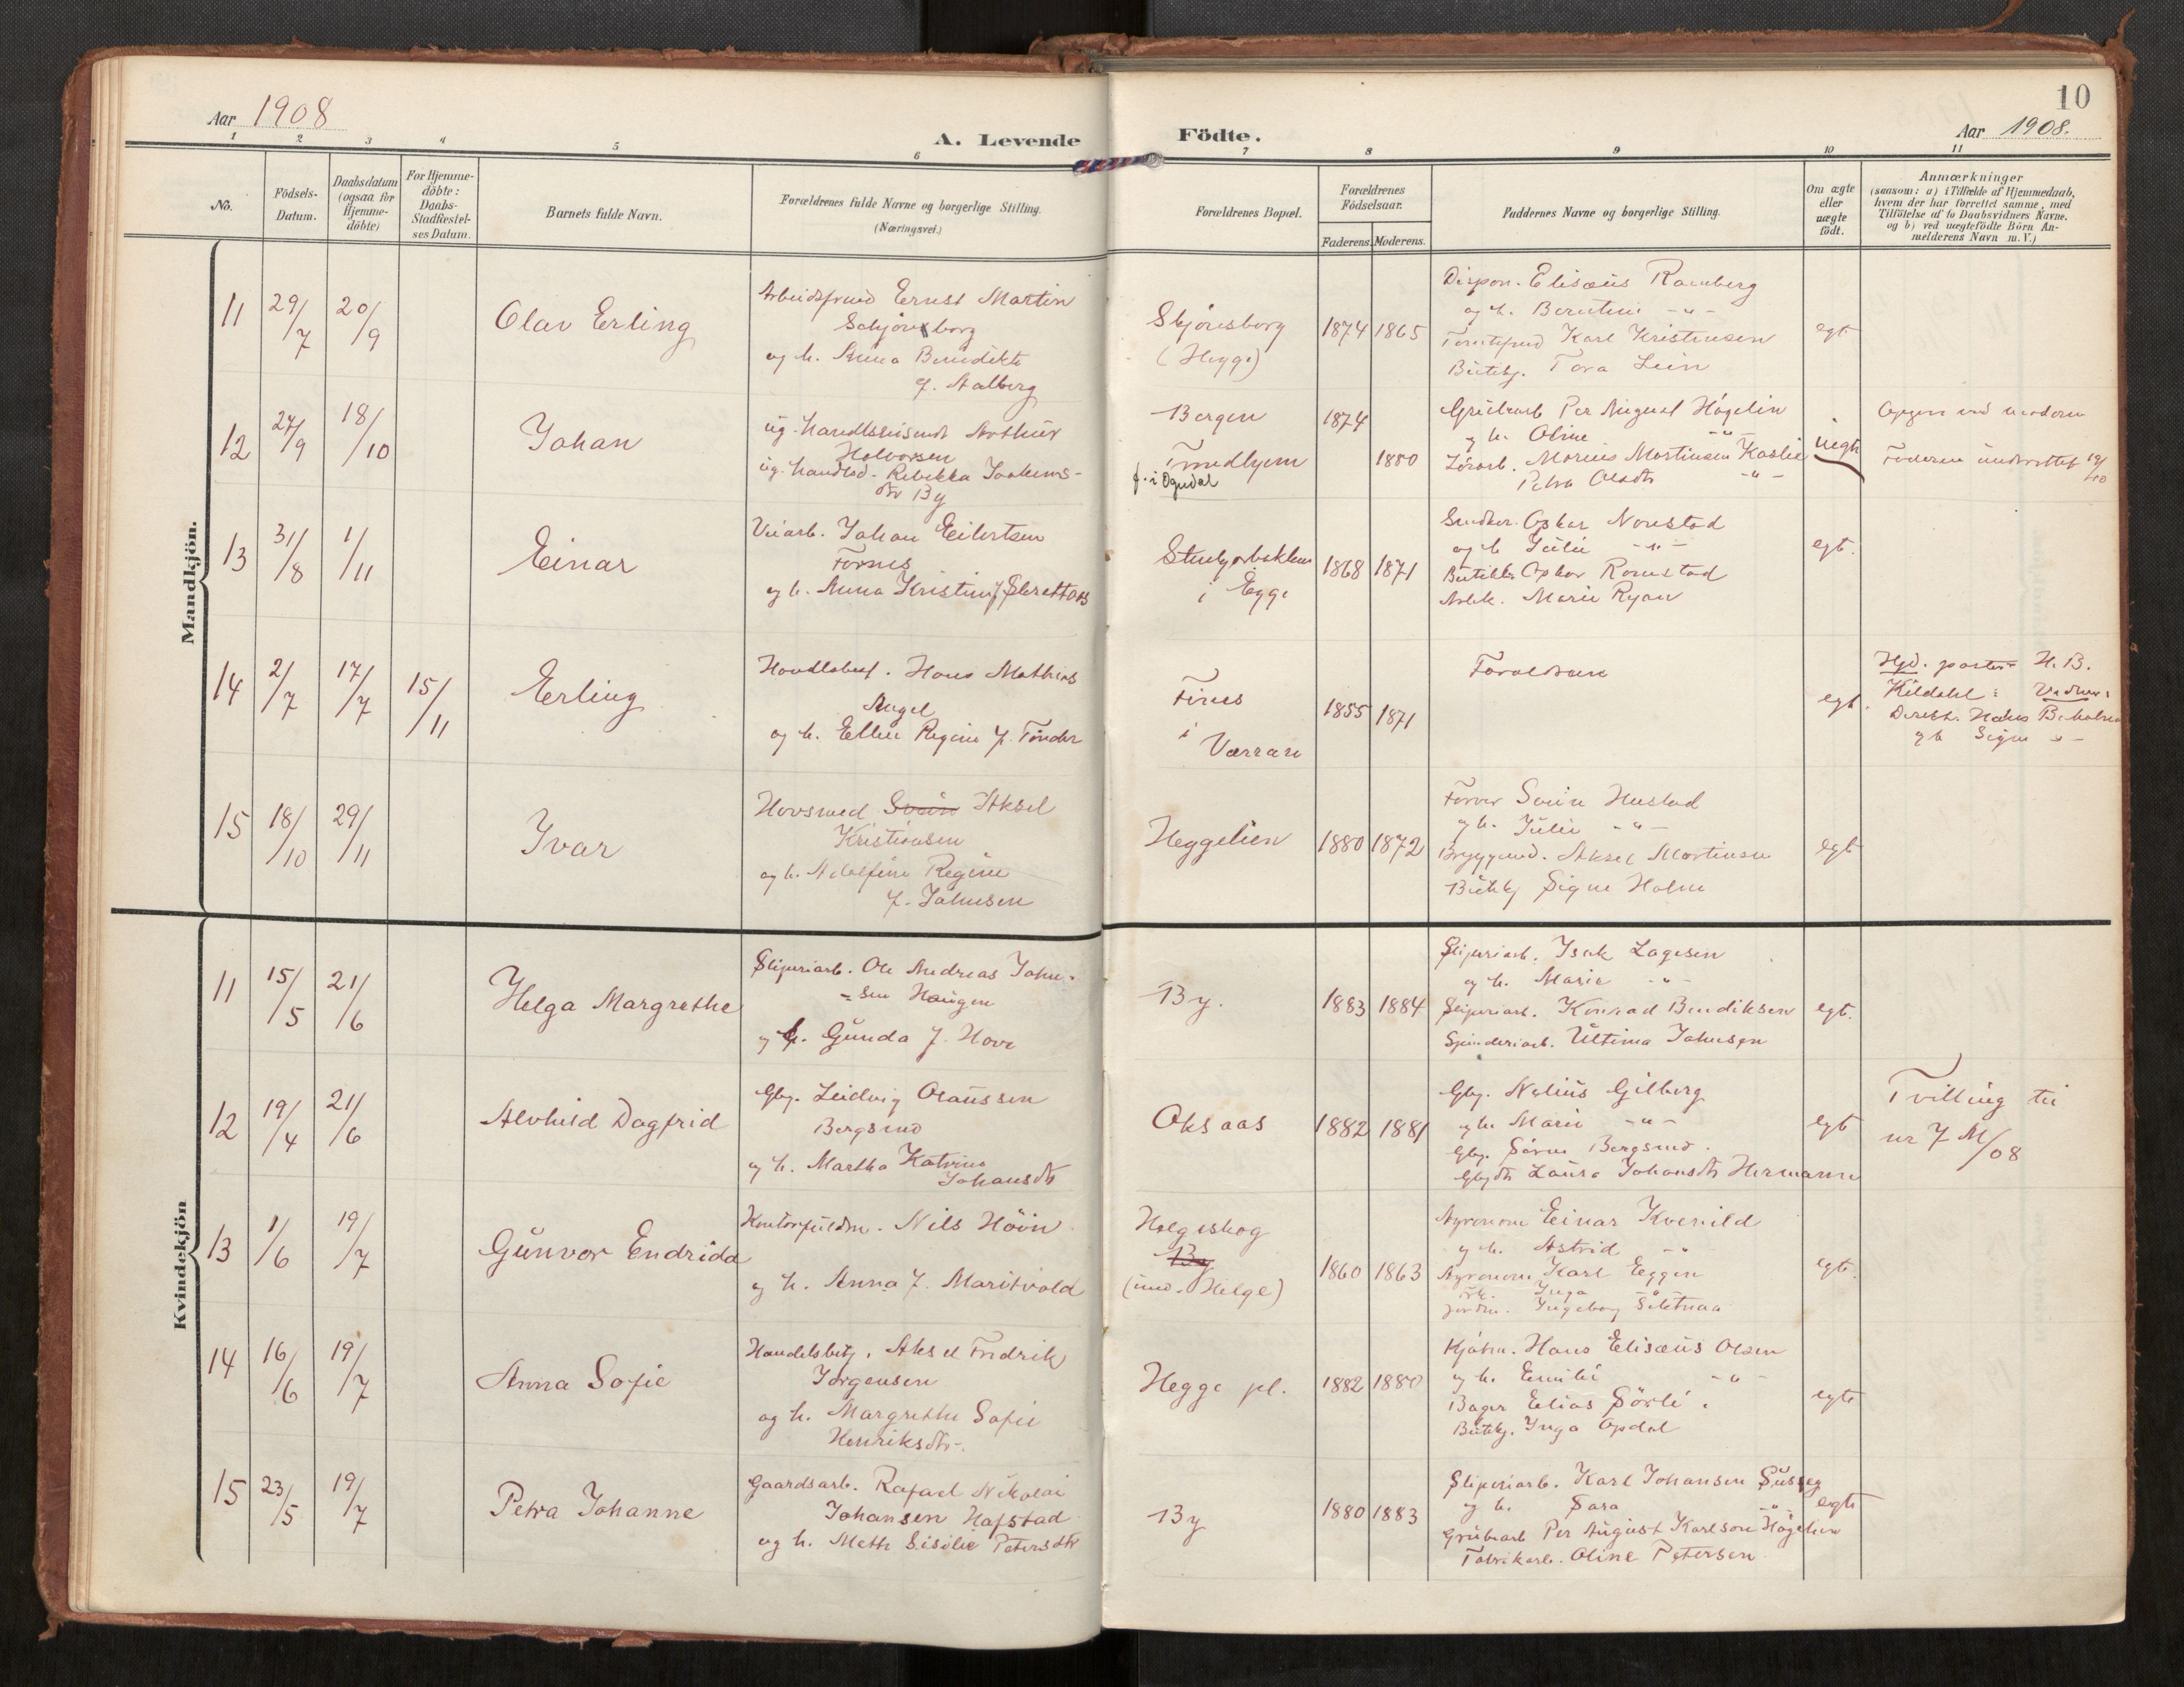 10
Aar 1908
A. Levende Födte.
Aar 1908.
1 2 3 4 5 6 7 8 9 10 11
No.
Födsels-
Datum.
Daabsdatum
(ogsaa for
Hjemme-
döbte)
For Hjemme-
döbte:
Daabs-
Stadfæstel-
ses Datum.
Barnets fulde Navn.
Forældrenes fulde Navne og borgerlige Stilling.
(Næringsvei.)
Forældrenes Bopæl.
Forældrenes
Födselsaar.
Faderens. Moderens.
Faddernes Navne og borgerlige Stilling.
Om ægte
eller
uægte
födt.
Anmærkninger
(saasom: a) i Tilfælde af Hjemmedaab,
hvem der har forrettet samme, med
Tilföielse af to Daabsvidners Navne,
og b) ved uægtefödte Börn An-
melderens Navn m. V.)
Mandkjön.
11 29/7 20/9
Olav Erling
Arbeidsfmd Ernst Martin
Schjönsborg
og h. Anna Benedikte
f. Aalberg
Skjönsborg
(Hegge)
1874 1865
Dispon. Elisæus Ramberg
og h. Berntine -"-
Karl Kristensen
Butikbj. Tora Lein
egt.
12 27/9 18/10
Johan
ug. Handlsreisende Arthur
Halvorsen
ug. handlsd. Rebekka Joakims-
dtr By
Bergen
Trondhjem
f. i Ogndal
1874
1880
Grubearb Per August Högelin
og h. Oline -"-
Marius Martinsen Kaslie
Petra Olsdtr -"-
uegte
Opgivn ved moderen
Faderen underrettet 19/10
13 31/8 1/11
Einar
Veiarb. Johan Eilertsen
Fornes
og h. Anna Kristine f. Skrettaas
Steinkjerbakken
i Egge
1868 1871
Snedker. Oskar Nonstad
og h Julie -"-
Butikbj. Oskar Romstad
Arbk. Marie Ryan
egt.
14 2/7 17/7 15/11
Erling
Handlsbest. Hans Mathias
Angel
og h. Ellen Regine f. Tönder
Fines
i
Værran
1855 1871
Forældrene
egt.
Hjd. pastor H. B.
Kildahl: Vidner:
Direkt. Hans B.
og h Signe -"-
15 18/10 29/11
Ivar
Hovsmed Svein Aksel
Kristiansen
og h. Adolfine Regine
f. Johnsen
Heggelien
1880 1872
Farver Svein Hustad
og h. Julie -"-
Bryggemd. Aksel Martinsen
Butikbj Signe Holm
egt
Kvindekjön
11 15/5 21/6
Helga Margrethe
Sliperiarb. Ole Andreas John-
=sen Haugen
og h. Gunda f. Hove
By.
1883 1884
Sliperiarb. Isak Lagesen
og h. Marie -"-
Sliperiarb. Konrad Bendiksen
Spinderiarb. Ultima Johnsen
egt.
12 19/4 21/6
Alvhild Dagfrid
Gbr. Ludvig Olaussen
Bergsmo
og h. Martha Katrine
Johansdtr
Oksaas
1882 1881
Gbr. Nelius Gilberg
og h. Marie -"-
Gbr. Sören Bergsmo.
Gbrdtr Laura Johansdtr Hermanne
egt
Tvilling til
nr 7 M/08
13 1/6 19/7
Gunvor Endrida
Kontorfuldm. Nils Höin
og h. Anna f. Maritvold
Helgeskog
By
(und. Helge)
1860 1863
Agronom Einar Kvenild
og h. Astrid -"-
Agronom Karl Eggen
frk. Inga -"-
Jordm. Ingeborg Sletnaa
egt.
14 16/6 19/7
Anna Sofie
Handelsbetj. Aksel Fredrik
Jörgensen
og h. Margrethe Sofie
Henriksdtr.
Hegge pl.
1882 1880
Kjöbm. Hans Elisæus Olsen
og h. Emilie -"-
Bager Elias Sörli.
Butikbj. Inga Opdal
egte
15 23/5 19/7
Petra Johanne
Gaardsarb. Rafael Nikolai
Johansen Hafstad
og h. Mette Sisilie Petersdtr
By
1880 1883
Sliperiarb. Karl Johansen Susseg
og h. Sara -"-
Grubearb Per August Karlson Högelin
Fabrikarb. Oline Petersen
egte